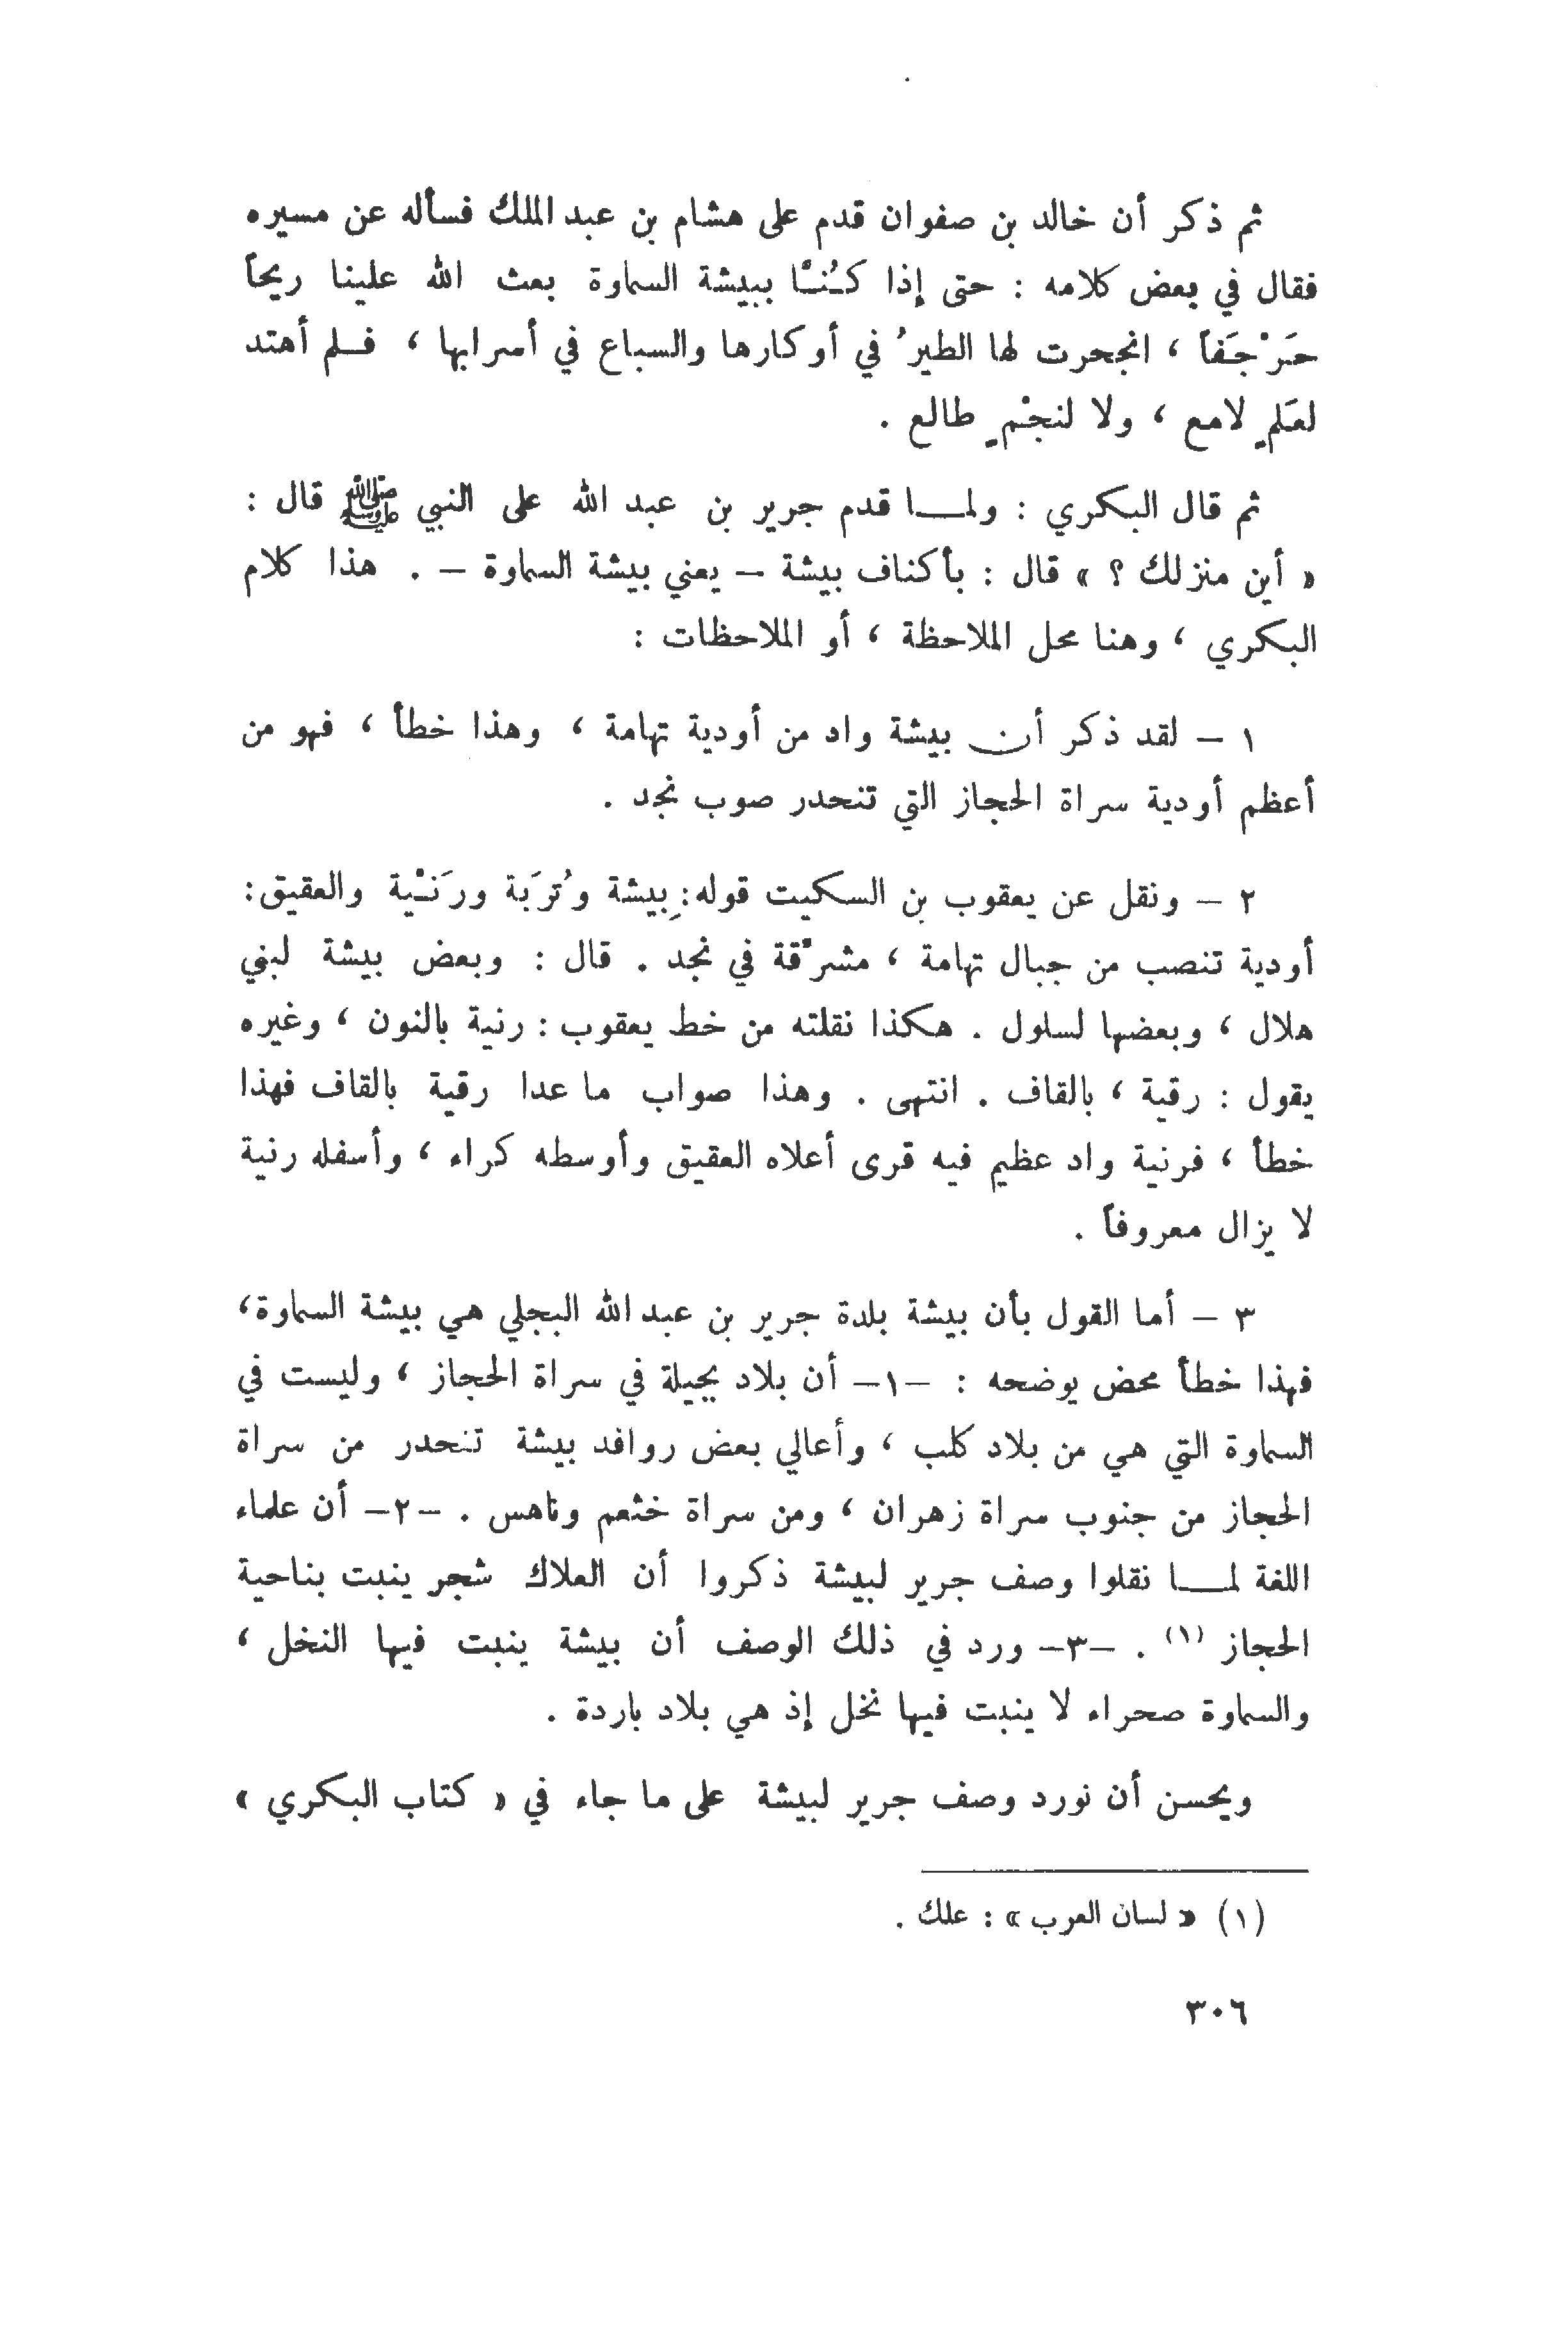 ثم ذكر أن خالد بن صفوان قدم على هشام بن عبد الملك فسأله عن مسيره
فقال في بعض كلامه : حتى إذا كُنـْا ببيشة السماوة بعث الله علينا ريحاً
حَرْجَفاً ، انجحرت لها الطيرُ في أوكارها والسباع في أسرابها ، فلم أهتد
لعَلمٍ لامع ، ولا لنجْمٍ طالع .
ثم قال البكري : ولما قدم جرير بن عبد الله على النبي ﷺ قال :
« أين منزلك ؟ » قال : بأكناف بيشة – يعني بيشة السماوة – . هذا كلام
البكري ، وهنا محل الملاحظة ، أو الملاحظات :
١ – لقد ذكر أن بيشة واد من أودية تهامة ، وهذا خطأ ، فهو من
أعظم أودية سراة الحجاز التي تنحدر صوب نجد .
٢ – ونقل عن يعقوب بن السكيت قوله: بِيشة وتُرَبة ورَنْية والعقيق:
أودية تنصب من جبال تهامة ، مشرْقة في نجد . قال : وبعض بيشة لبني
هلال ، وبعضها لسلول . هكذا نقلته من خط يعقوب : رنية بالنون ، وغيره
يقول : رقية ، بالقاف . انتهى . وهذا صواب ما عدا رقية بالقاف فهذا
خطأ ، فرنية واد عظيم فيه قرى أعلاه العقيق وأوسطه كراء ، وأسفله رنية
لا يزال معروفاً .
٣ – أما القول بأن بيشة بلدة جرير بن عبد الله البجلي هي بيشة السماوة،
فهذا خطأ محض يوضحه : –١– أن بلاد بجيلة في سراة الحجاز ، وليست في
السماوة التي هي من بلاد كلب ، وأعالي بعض روافد بيشة تنحدر من سراة
الحجاز من جنوب سراة زهران ، ومن سراة خثعم وناهس . –٢– أن علماء
اللغة لما نقلوا وصف جرير لبيشة ذكروا أن العلاك شجر ينبت بناحية
الحجاز (١) . –٣– ورد في ذلك الوصف أن بيشة ينبت فيها النخل ،
والسماوة صحراء لا ينبت فيها نخل إذ هي بلاد باردة .
ويحسن أن نورد وصف جرير لبيشة على ما جاء في « كتاب البكري »
(١) « لسان العرب » : علك .
٣٠٦